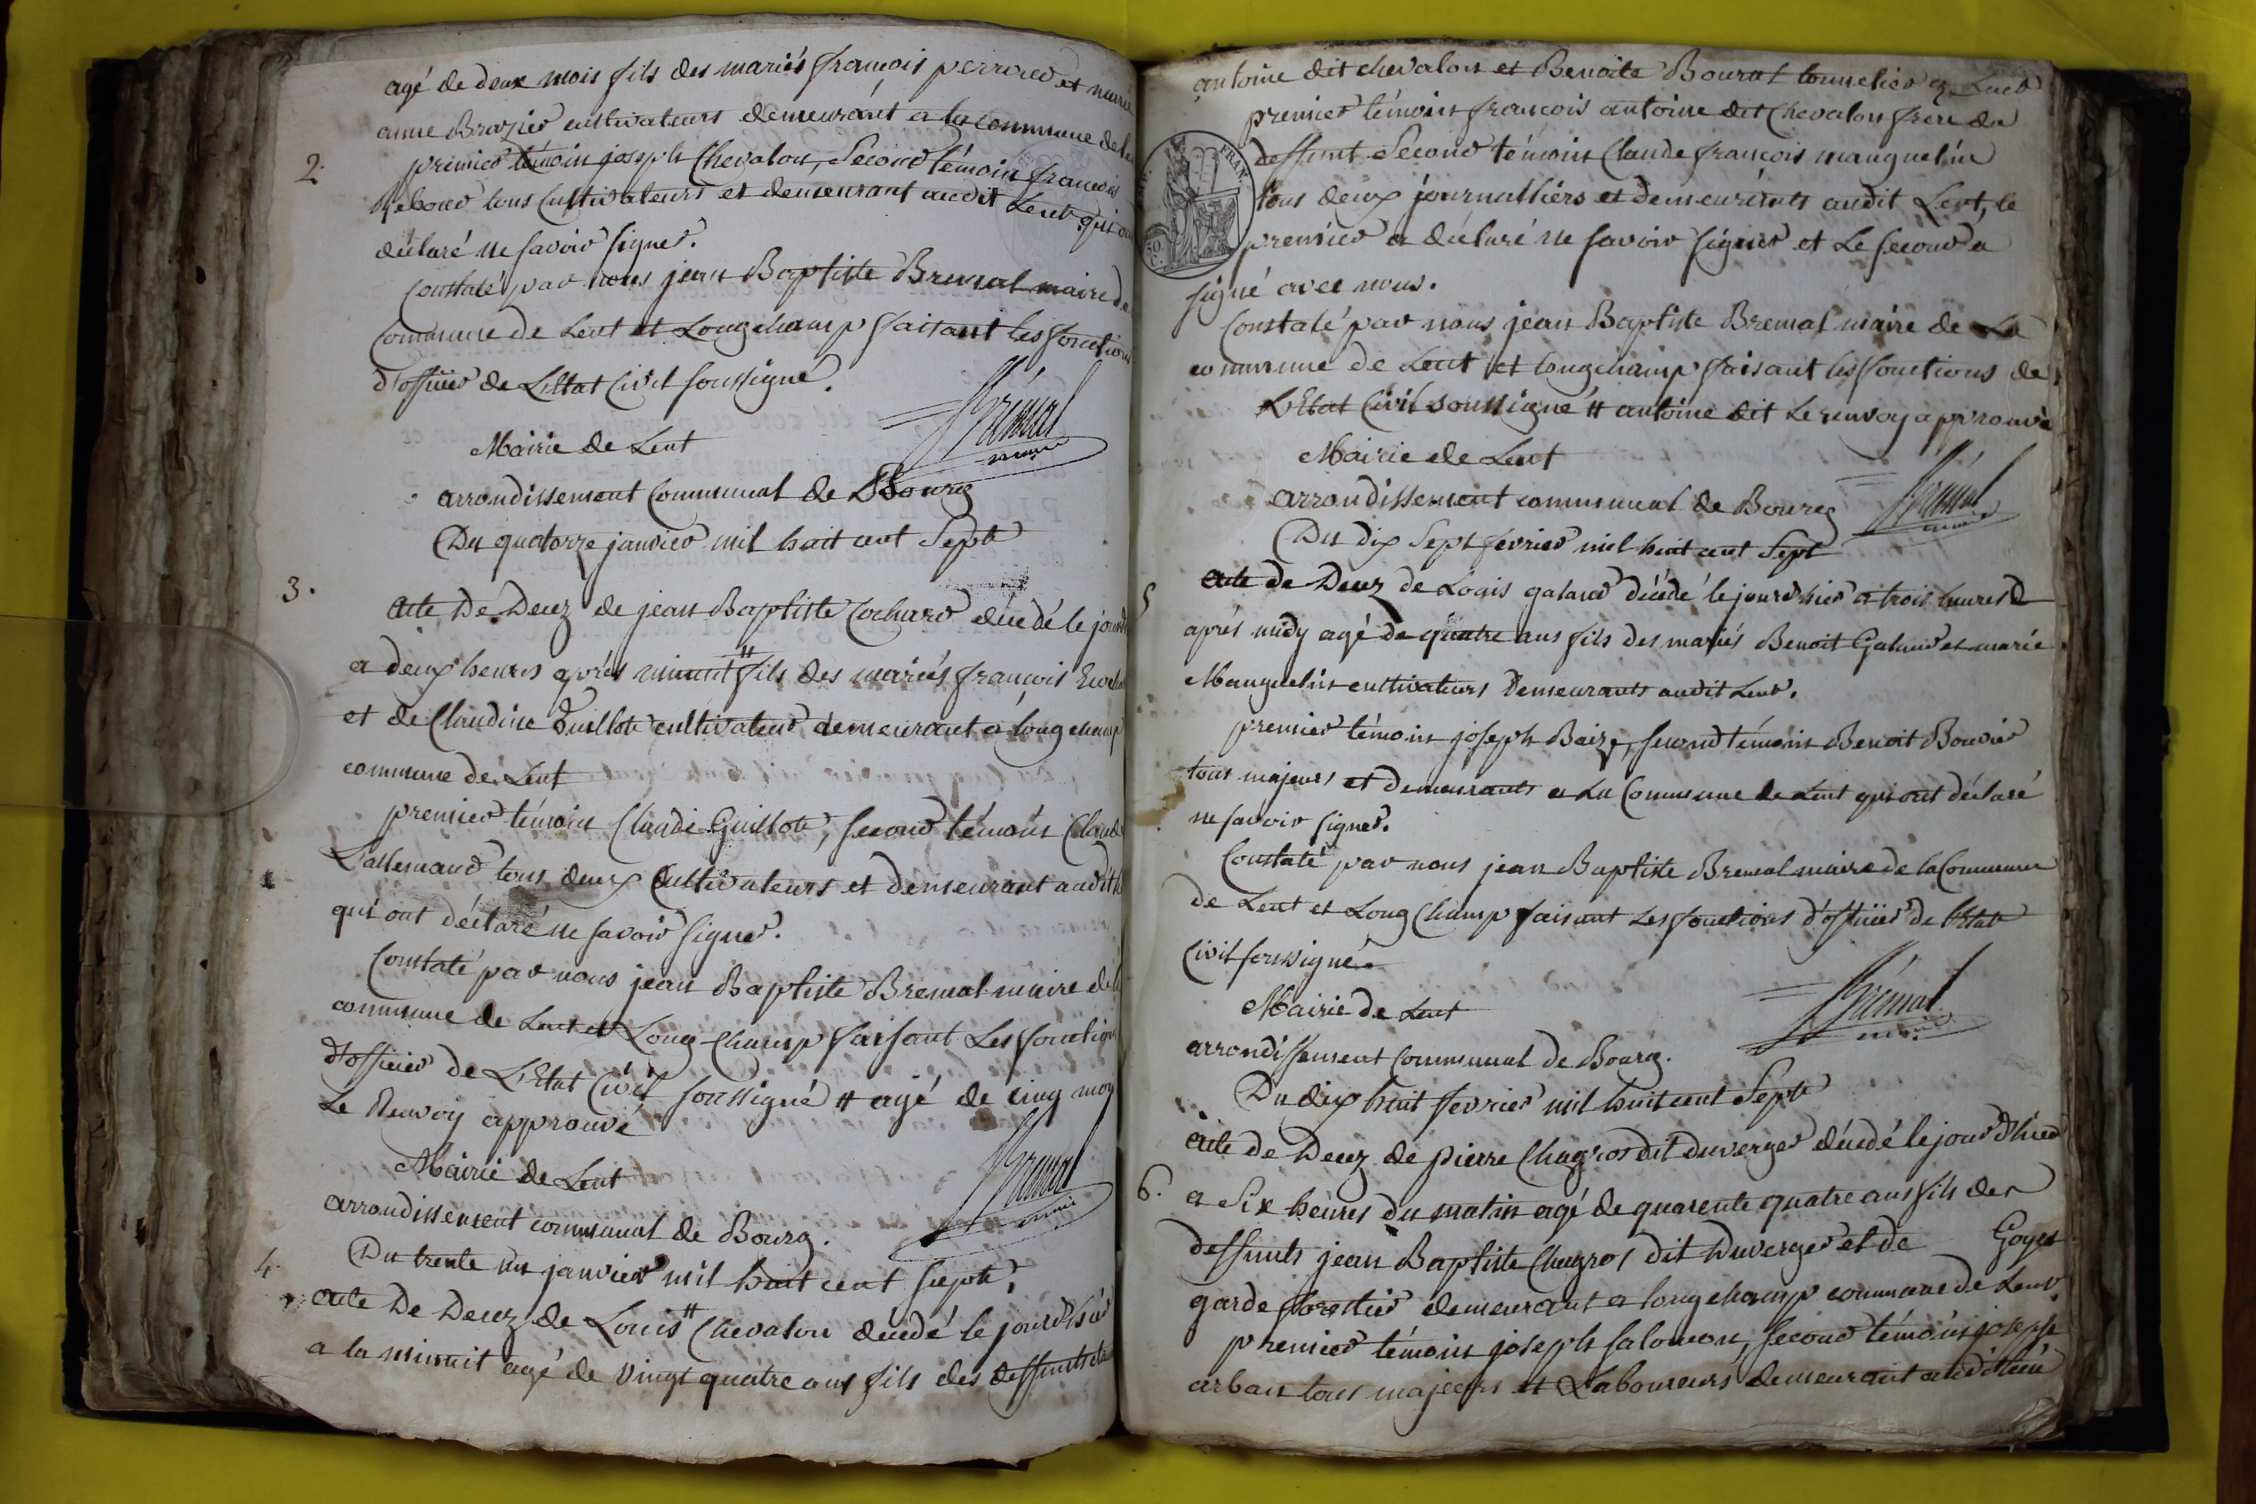 agé de deux mois fils des mariés françois perroud et marie
anne Brazier cultivateurs demeurant a la commune de
2.
premier témoin joseph Chevalon, Second témoin françois
Rebour tous Cultivateurs et demeurant audit Lent qui ont
déclaré ne savoir signer.
Constaté par nous jean Baptiste Bremal maire de
Commune de Lent et Longchamp faisant les fonctions
d'officier de L'Etat Civil soussigné.
Brémal
maire
Mairie de Lent
arrondissement Communal de Bourg
Du quatorze janvier mil huit cent Sept
3.
acte De Decez de jean Baptiste Cochard décédé le jourd
a deux heures après minuit # fils des mariés françois
et de Claudine Guillot cultivateur demeurant a longchamp
commune de Lent
premier témoin Claude Guillot, second témoin Claude
L'allemand tous deux Cultivateurs et demeurant audit
qui ont déclaré ne savoir signer.
Constaté par nous jean Baptiste Bremal maire de la
commune de Lent et Long-champ faisant Les fonctions
d'officier de L'Etat Civil soussigné # agé de cinq moy
Le Renvoy approuvé
Bremal
maire
Mairie de Lent
arrondissement communal de Bourg.
4.
Du trente un janvier mil huit cent sept,
acte De Decez de Louis # Chevalon décédé le jourd'hier
a la minuit agé de vingt quatre ans fils des deffunts
antoine dit chevalon et Benoite Bourat tonnelier a Lent
premier témoin françois antoine dit Chevalon frere du
deffunt Second témoin Claude françois manguelin
FRAN.
tous deux journalliers et demeurants audit Lent, le
premier a déclaré ne savoir signer et Le second a
signé avec nous.
Constaté par nous jean Baptiste Bremal maire de La
commune de Lent et longchamp faisant les fonctions de
L'Etat Civil soussigné # antoine dit Le renvoy approuvé
Mairie de Lent
Brémal
maire
arrondissement communal de Bourg
Du dix Sept fevrier mil huit cent Sept
5
acte de Decez de Louis galand décédé le jourd'hier a trois heures
après midy agé de quatre ans fils des mariés Benoit Galand et marie
Manguelin cultivateurs Demeurants audit Lent.
premier témoin joseph Baize, second témoin Benoit Bouvier
tous majeurs et demeurants a La Commune de Lent qui ont déclaré
ne savoir signer.
Constaté par nous jean Baptiste Bremal maire de la Commune
de Lent et Long Champ faisant Les fonctions d'officier de l'Etat
Civil soussigné
Brémal
maire
Mairie de Lent
arrondissement Communal de Bourg.
Du dix huit fevrier mil huit cent Sept
acte de Decez de pierre Chagros dit duverger décédé le jour d'hier
6.
a Six heures du matin agé de quarente quatre ans fils des
deffunts jean Baptiste Chagros dit Duverger et de Goyet
garde forestier demeurant a longchamp commune de Lent.
premier témoin joseph Salomon, second témoin joseph
arban tous majeurs et Laboureurs demeurant audit lieu